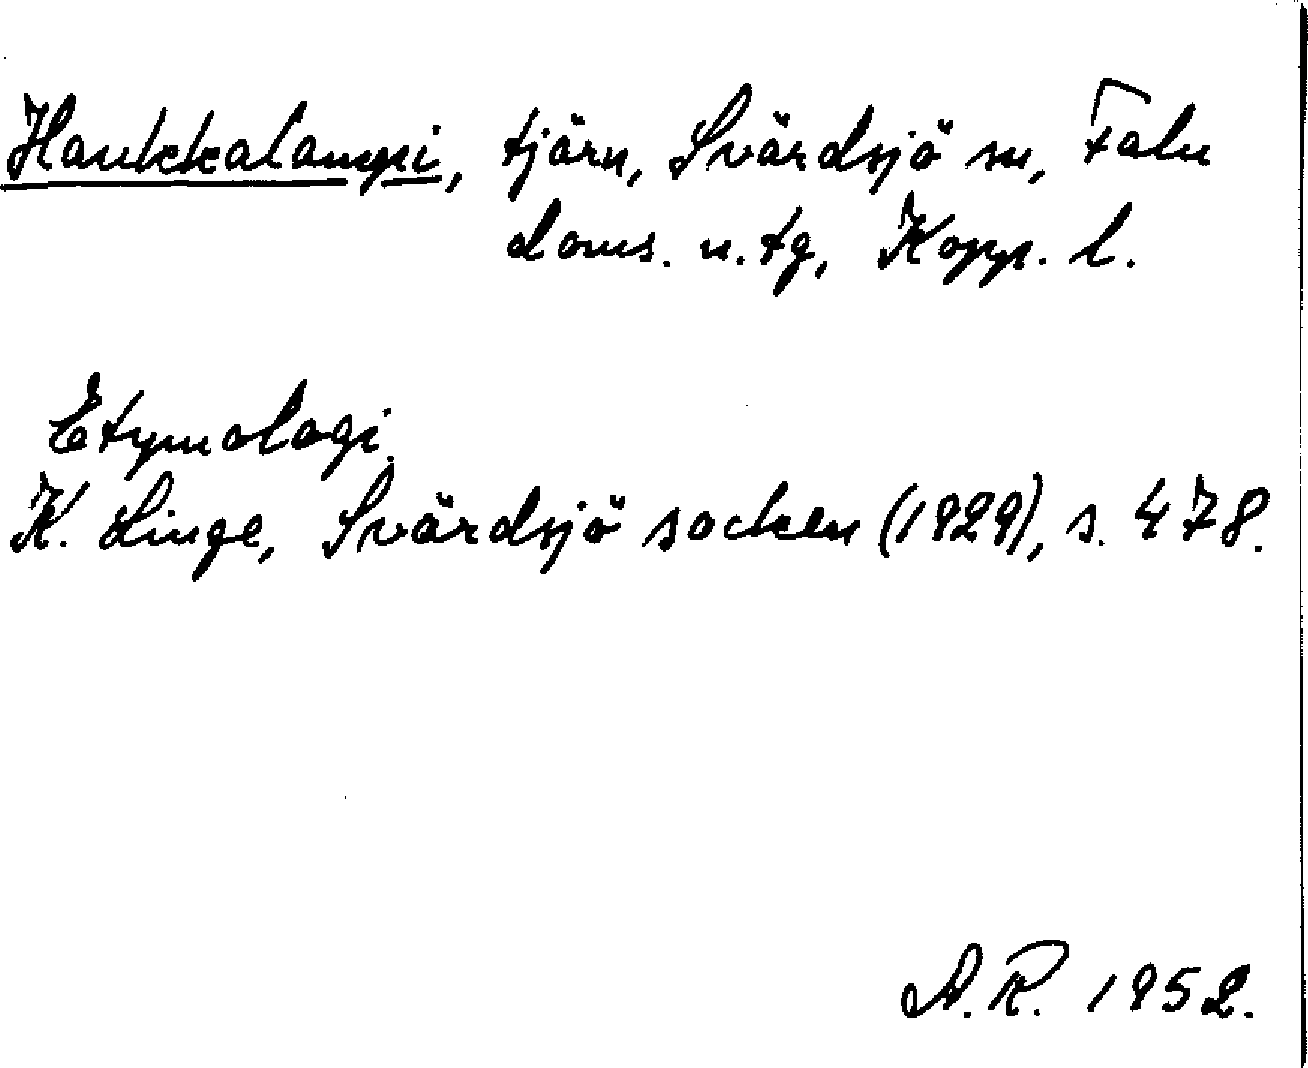 Haukkalampi, tjärn, Svärdsjö sn, Falu
doms. n. tg, Kopp. l.
Etymologi.
K. Linge, Svärdsjö socken (1929), s. 478.
A.R. 1952.